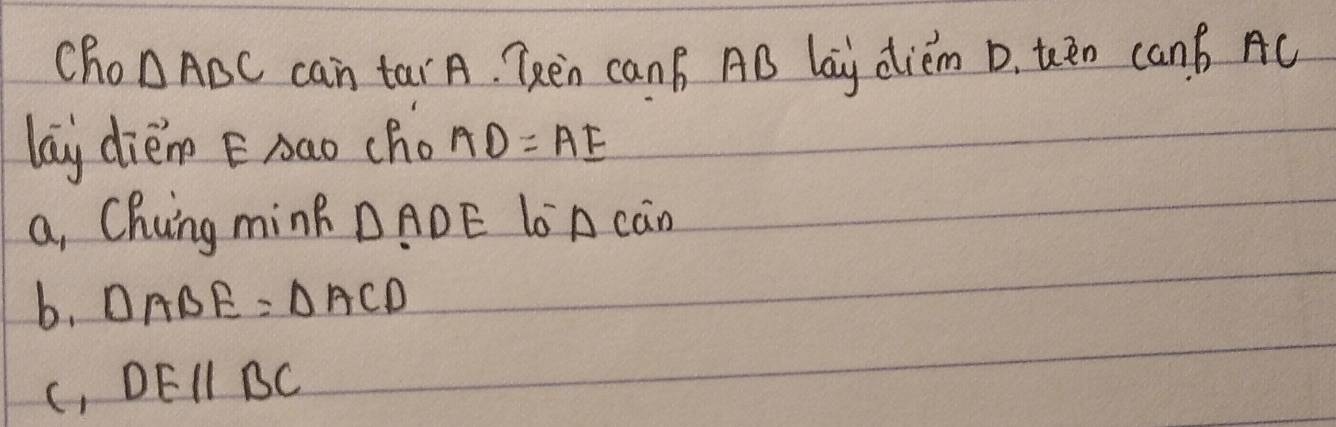 Cho Δ ABC cân tại A. Trên cạnh AB lấy điểm D, trên cạnh AC
lấy điểm E sao cho AD = AE
a, Chứng minh Δ ADE là Δ cân
b, Δ ABE = Δ ACD
c, DE // BC